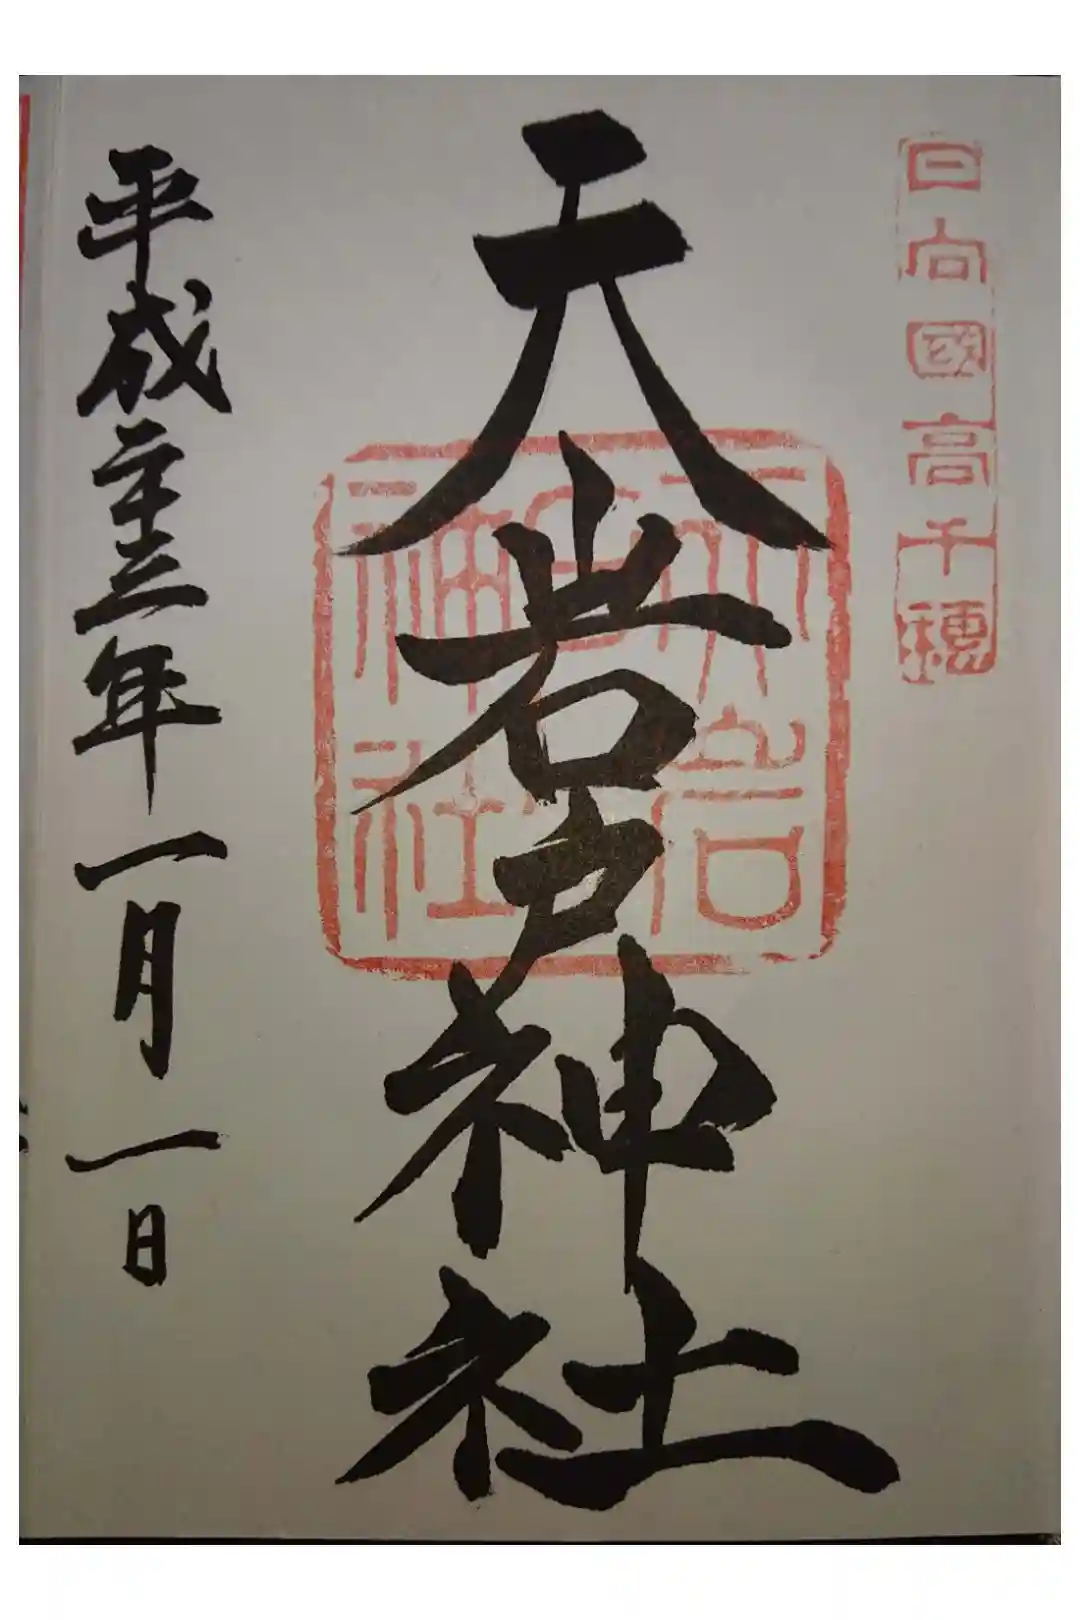 日向國高千穂
天岩戸神社
天岩戸神社
平成二十三年一月一日